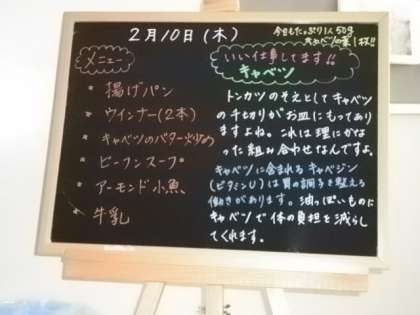 2月10日(木)
今日もたっぷり1人50g
大キャベツの葉1枚!!
メニュー
* 揚げパン
* ウインナー(2本)
* キャベツのバター炒め
* ビーフンスープ
* アーモンド小魚
* 牛乳
いい仕事してます!!
キャベツ
トンカツのそえとしてキャベツ
の千切りがお皿にもってあり
ますよね。これは理にかな
った組み合わせなんですよ。
キャベツに含まれるキャベジン
(ビタミンU)は胃の調子を整える
働きがあります。油っぽいものに
キャベツで体の負担を減らし
てくれます。